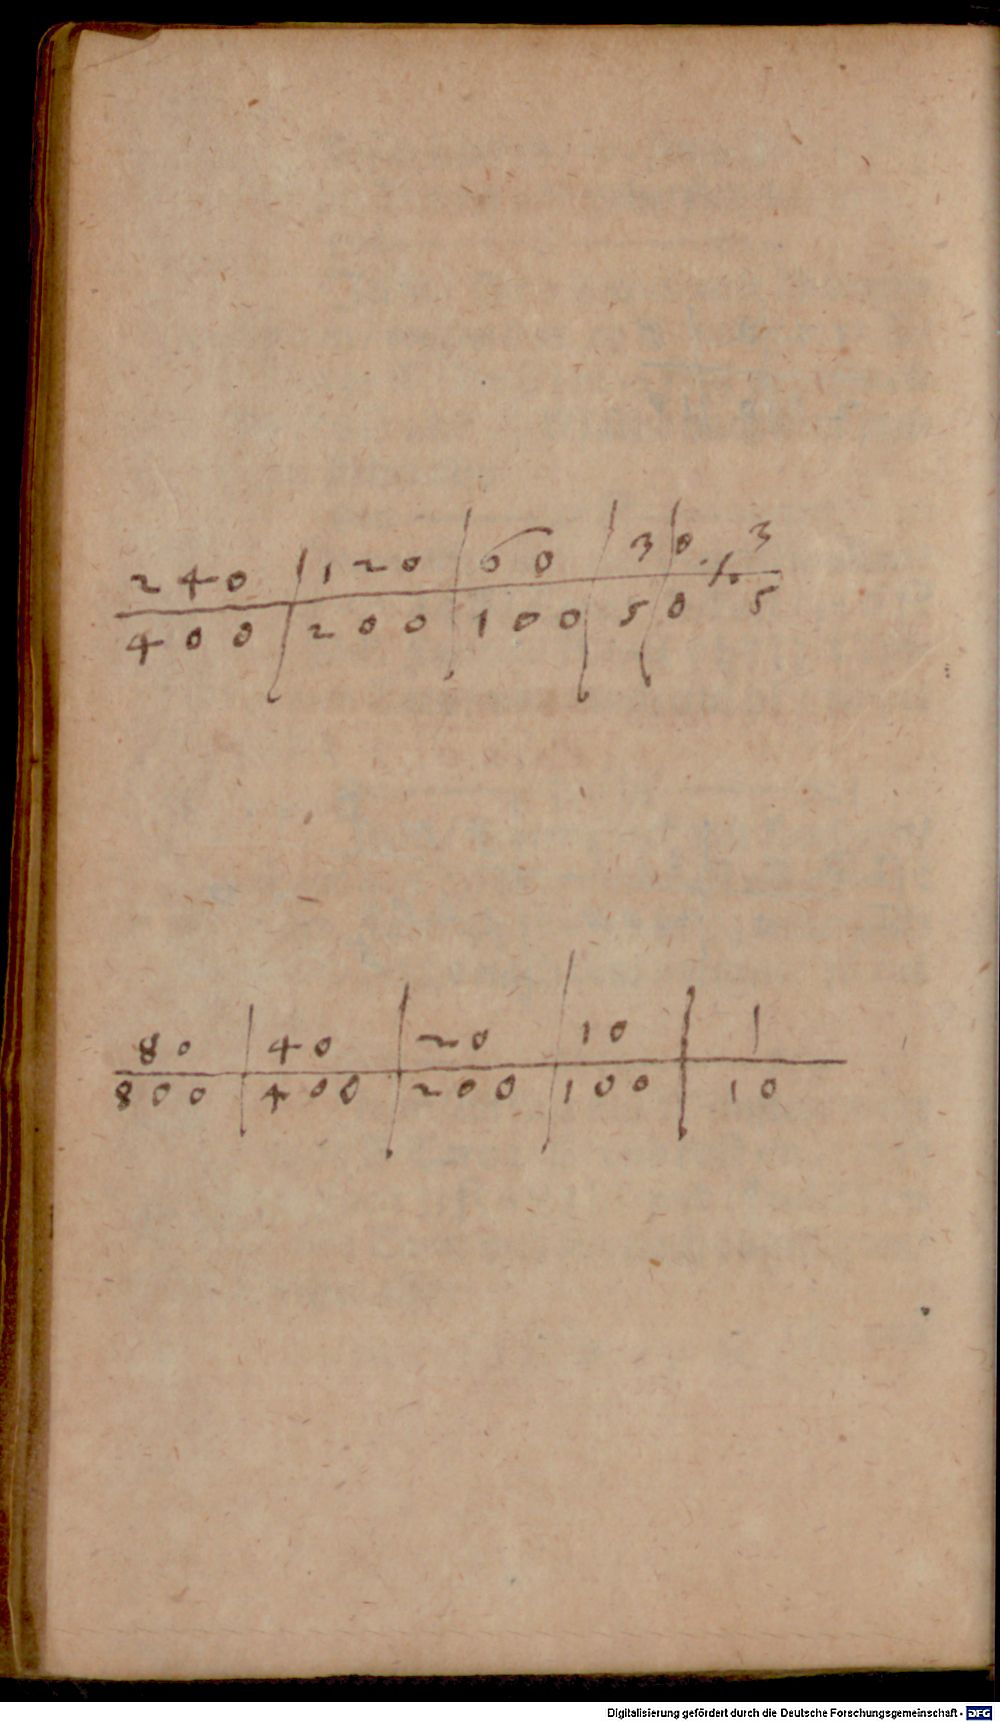 240 | 120 | 60 | 3|0 ./. 3
400 | 200 | 100 | 5|0 5
80 | 40 | 20 | 10 | 1
800 | 400 | 200 | 100 | 10
Digitalisierung gefördert durch die Deutsche Forschungsgemeinschaft - DFG